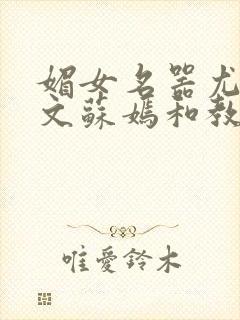 媚女名器尤
文蘇媽和教
唯愛鈴木